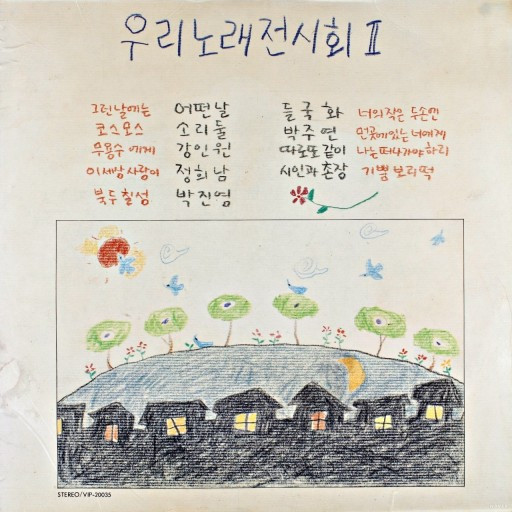 우리노래전시회 II
그런날에는 어떤날 들국화 너의작은 두손엔
코스모스 소리둘 박주연 먼곳에있는 너에게
무용수에게 강인원 따로또같이 나는떠나가야하리
이세상사랑이 정희남 시인과 촌장 기쁨보리떡
북두칠성 박진영
STEREO/VIP-20035